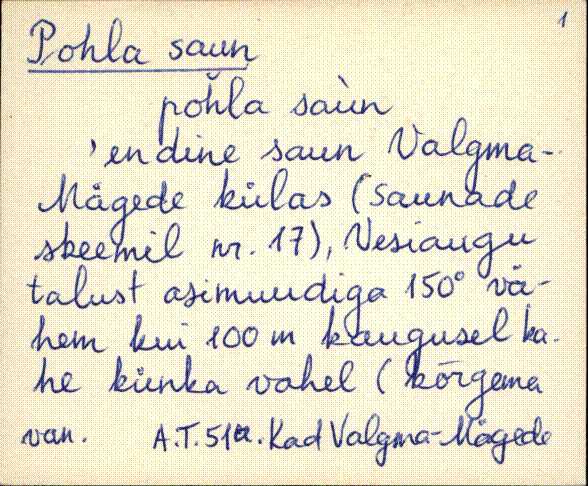 1
Pohla saun
pohla saùn
'endine saun Valgma-
Mägede külas (Saunade
skeemil nr. 17), Vesiaugu
talust asimuudiga 150° vä-
hem kui 100 m kaugusel ka-
he künka vahel (kõrgema
van. A.T. 51a. Kad Valgma-Mägede